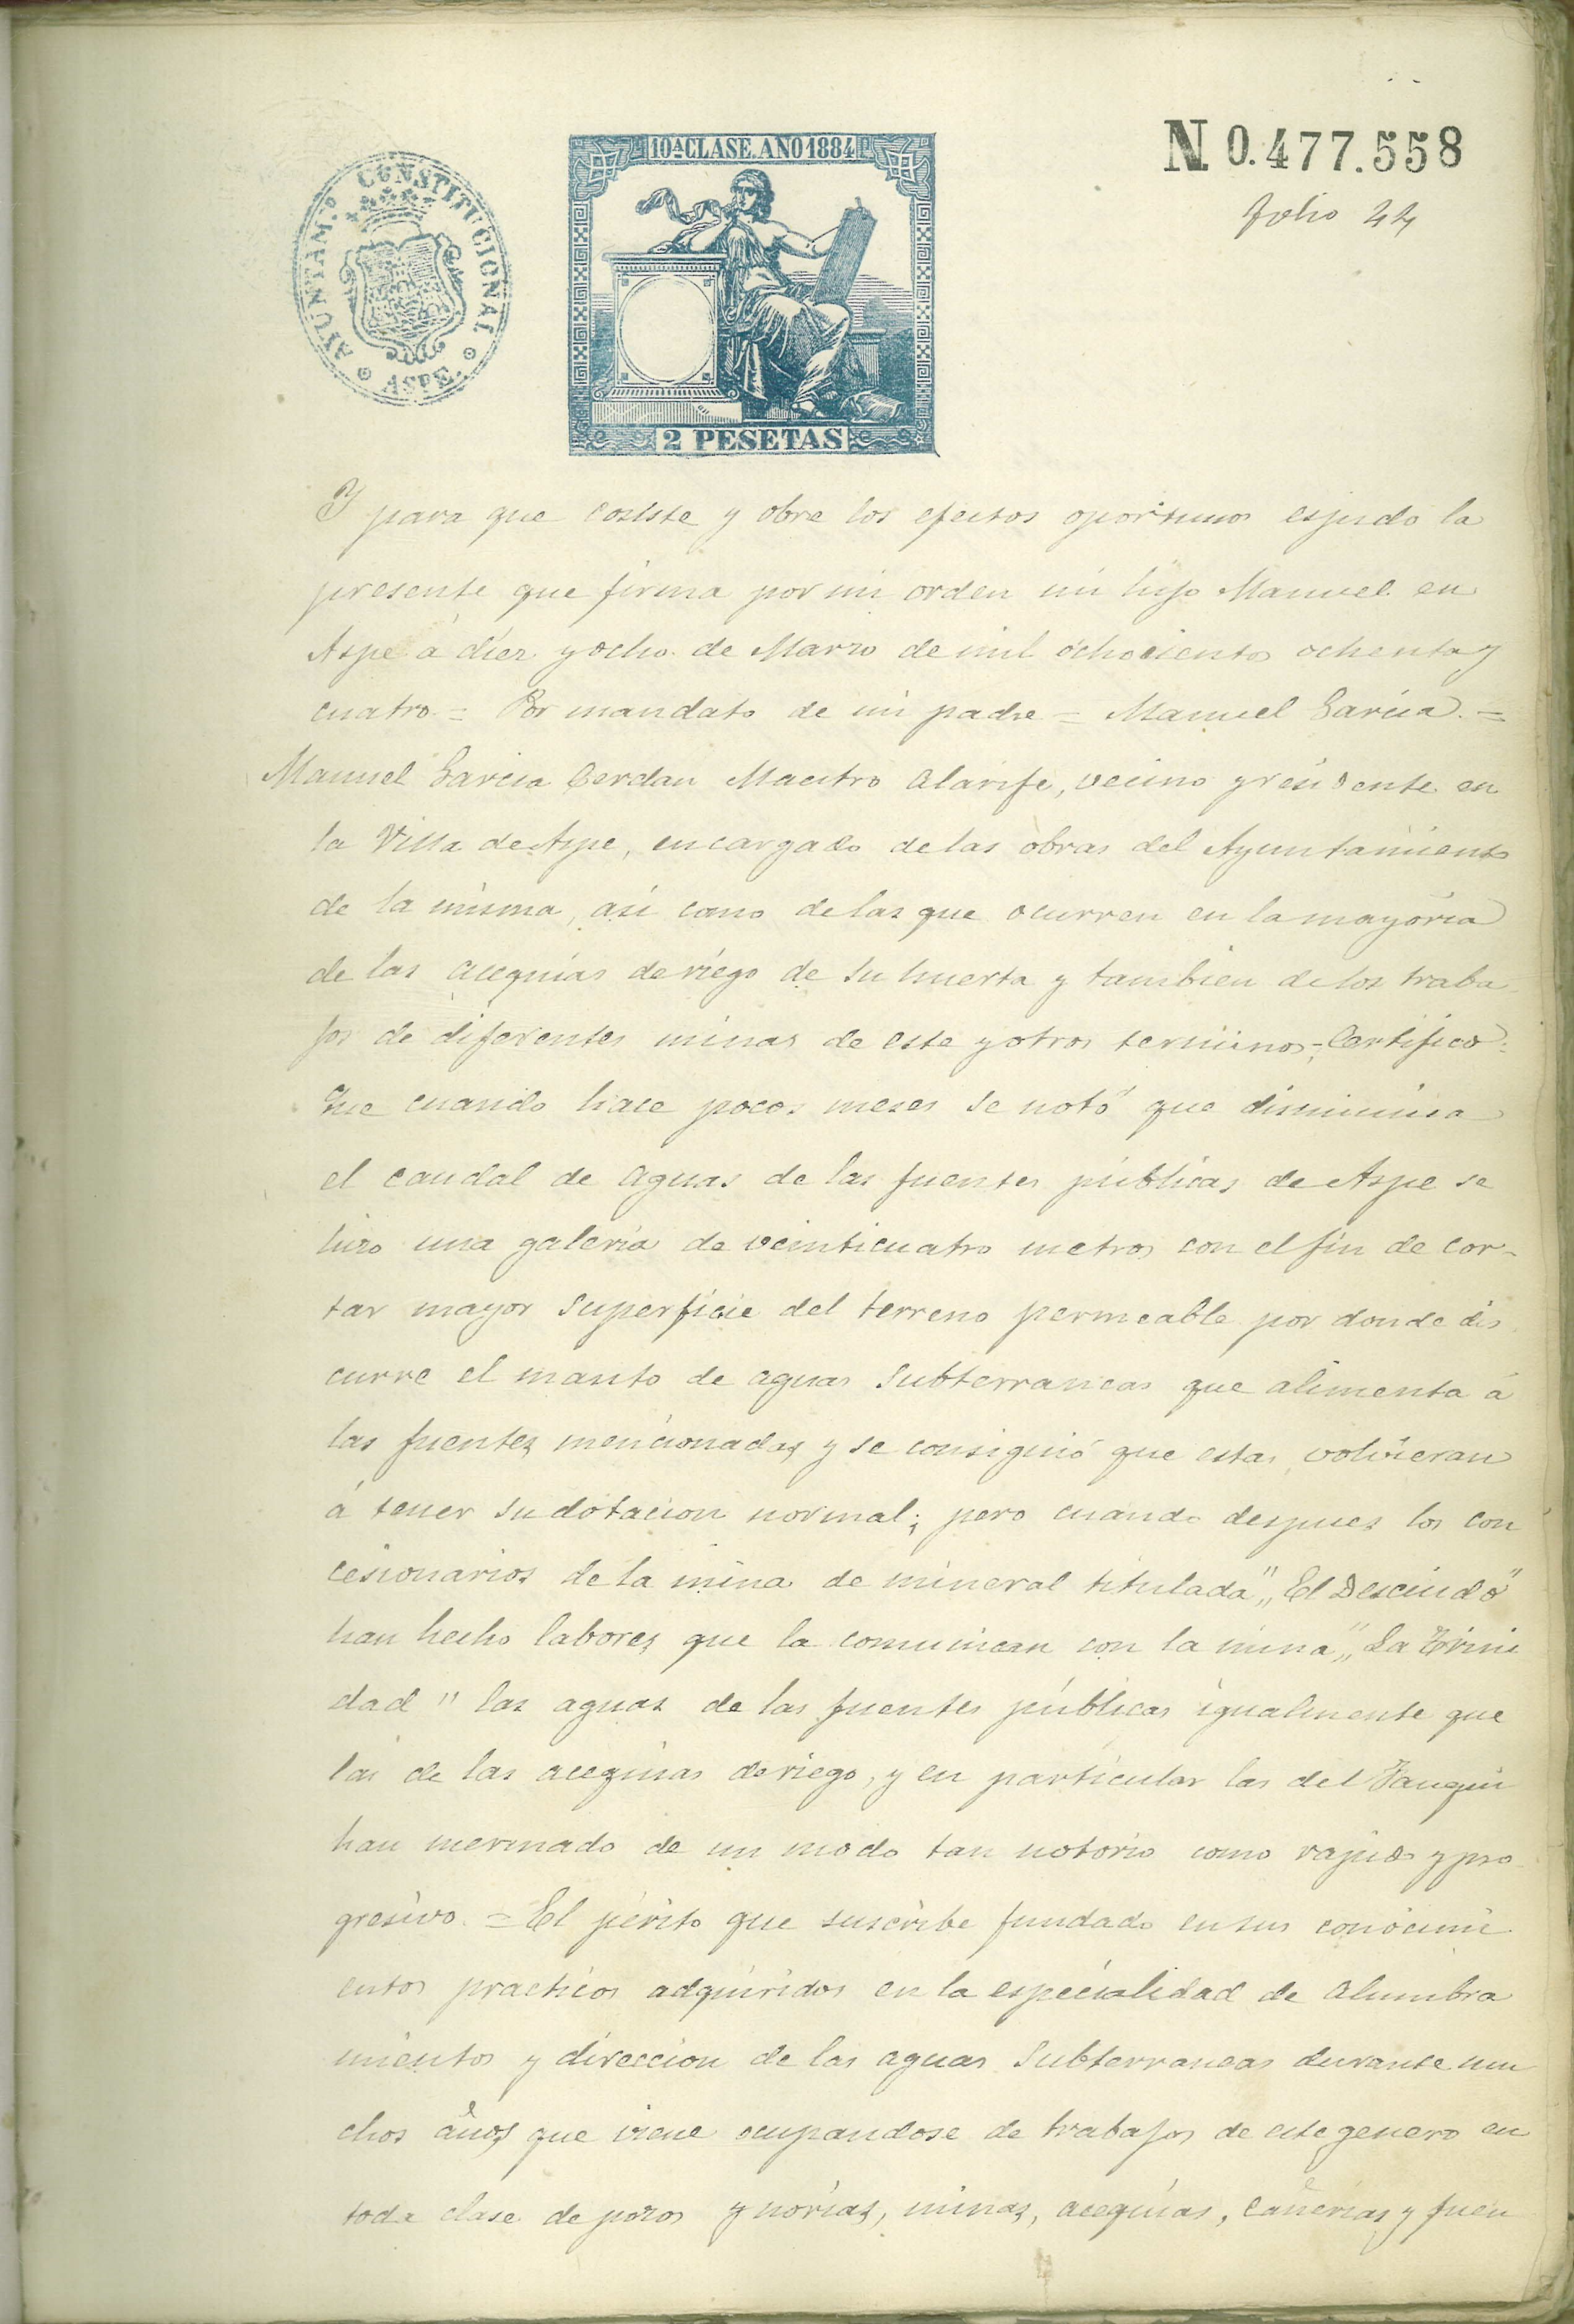 AYUNTAM.º CONSTITUCIONAL
ASPE.
10ª CLASE. AÑO 1884
2 PESETAS
N 0.477.558
folio 44
Y para que coziste y obre los efectos oportunos espido la
presente que firma por mi orden mi hijo Manuel en
Aspe á diez y ocho de Marzo de mil ochocientos ochenta y
cuatro = Por mandato de mi padre = Manuel García. =
Manuel Garcia Cerdan Maestro alarife, vecino y residente en
la Villa de Aspe, encargado de las obras del Ayuntamiento
de la misma, asi como de las que ocurren en la mayoría
de las acequias de riego de su huerta y tambien de los traba
jos de diferentes minas de este y otros terminos; Certifico:
Que cuando hace pocos meses se notó que disminuia
el caudal de aguas de las fuentes públicas de Aspe se
hizo una galería de veinticuatro metros con el fin de cor-
tar mayor superficie del terreno permeable por donde dis
curre el manto de aguas subterraneas que alimenta á
las fuentes mencionadas y se consiguió que estas volvieran
á tener su dotacion normal; pero cuando despues los con
cesionarios de la mina de mineral titulada „El Descuido"
han hecho labores que la comunican con la mina „La Trini
dad" las aguas de las fuentes públicas igualmente que
las de las acequias de riego, y en particular las del Fauquí
han mermado de un modo tan notorio como rapido y pro
gresivo. = El périto que suscribe fundado en sus conocimi
entos practicos adquiridos en la especialidad de alumbra
mientos y direccion de las aguas subterraneas durante mu
chos años que viene ocupandose de trabajos de este genero en
toda clase de pozos y norias, minas, acequias, cañerias y fuen